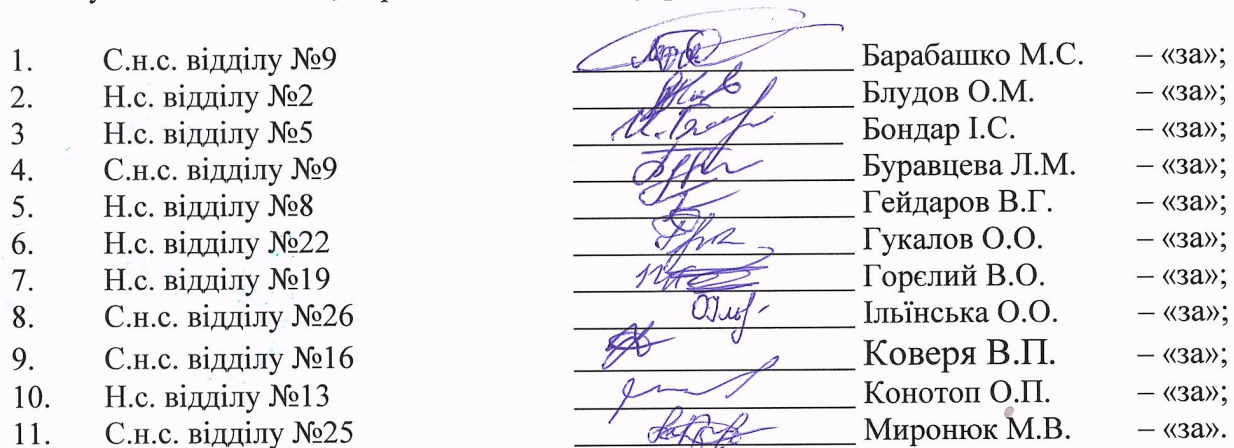 1. С.н.с. відділу №9 Барабашко М.С. – «за»;
2. Н.с. відділу №2 Блудов О.М. – «за»;
3 Н.с. відділу №5 Бондар І.С. – «за»;
4. С.н.с. відділу №9 Буравцева Л.М. – «за»;
5. Н.с. відділу №8 Гейдаров В.Г. – «за»;
6. Н.с. відділу №22 Гукалов О.О. – «за»;
7. Н.с. відділу №19 Горєлий В.О. – «за»;
8. С.н.с. відділу №26 Ільїнська О.О. – «за»;
9. С.н.с. відділу №16 Коверя В.П. – «за»;
10. Н.с. відділу №13 Конотоп О.П. – «за»;
11. С.н.с. відділу №25 Миронюк М.В. – «за».